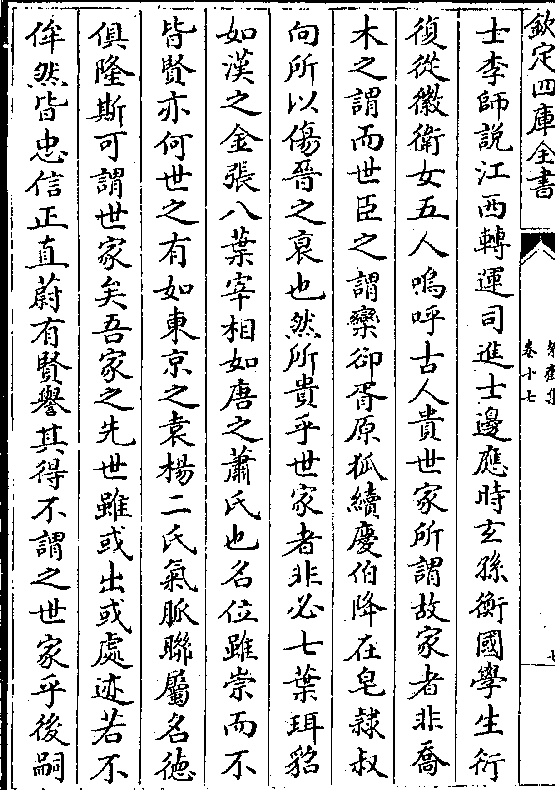 欽定四庫全書
卷十七
士李師說江西轉運司進士邊應時玄孫衡國學生衍
復從徽衛女五人嗚呼古人貴世家所謂故家者非喬
木之謂而世臣之謂欒郤胥原狐續慶伯降在皂隸叔
向所以傷晉之衰也然所貴乎世家者非必七葉珥貂
如漢之金張八葉宰相如唐之蕭氏也名位雖崇而不
皆賢亦何世之有如東京之袁楊二氏氣脈聯屬名徳
俱隆斯可謂世家矣吾家之先世雖或出或處迹若不
侔然皆忠信正直蔚有賢譽其得不謂之世家乎後嗣